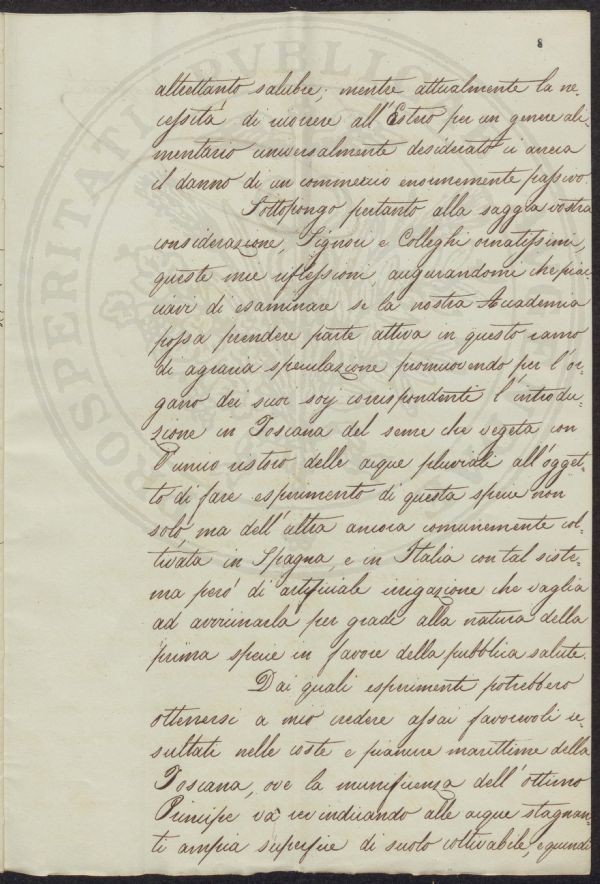 8
altrettanto salubre; mentre attualmente la ne=
cessità di ricorrere all'Estero per un genere ali=
mentario universalmente desiderato ci arreca
il danno di un commercio enormemente passivo.
Sottopongo pertanto alla saggia vostra
considerazione, Signori e Colleghi ornatissimi,
queste mie riflessioni, augurandomi che piac=
ciavi di esaminare se la nostra Accademia
possa prendere parte attiva in questo ramo
di agraria speculazione promuovendo per l'or=
gano dei suoi socj corrispondente l'introdu=
zione in Toscana del seme che vegeta con
l'unico ristoro delle acque pluviali all'ogget=
to di fare esperimento di questa specie non
solo, ma dell'altra ancora comunemente col=
tivata in Spagna, e in Italia con tal siste=
ma però di artificiale irrigazione che vaglia
ad avvicinarla per grade alla natura della
prima specie in favore della pubblica salute.
Dai quali esperimente potrebbero
ottenersi a mio credere assai favorevoli re=
sultati nelle coste e pianure marittime della
Toscana, ove la munificenza dell'ottimo
Principe va rivendicando alle acque stagnan=
ti ampia superficie di suolo coltivabile, e quindi
PROSPERITATI PUBLICAE